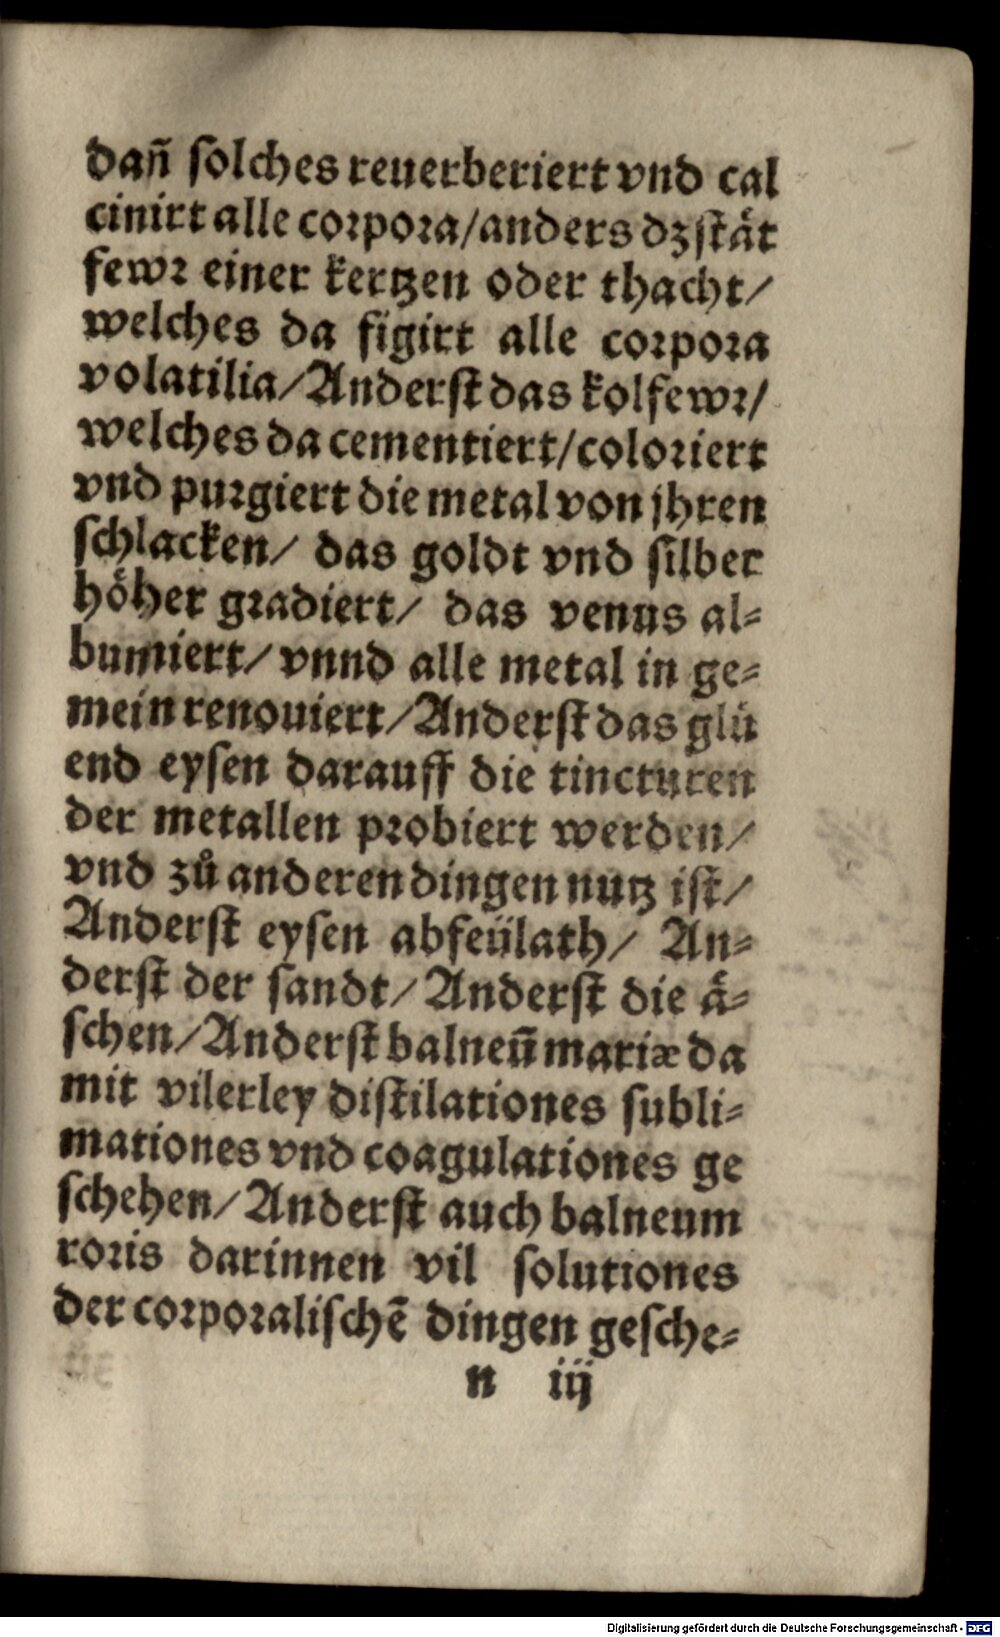 dañ solches reuerberiert vnd cal
cinirt alle corpora/anders dz stät
fewr einer kertzen oder thacht/
welches da figirt alle corpora
volatilia/Anderst das kolfewr/
welches da cementiert/coloriert
vnd purgiert die metal von jhren
schlacken/ das goldt vnd silber
höher gradiert/ das venus al-
bumiert/ vnnd alle metal in ge-
mein renouiert/Anderst das glü
end eysen darauff die tincturen
der metallen probiert werden/
vnd zů anderen dingen nutz ist/
Anderst eysen abfeülath/ An-
derst der sandt/Anderst die ä-
schen/Anderst balneū mariæ da
mit vilerley distilationes subli-
mationes vnd coagulationes ge
schehen/Anderst auch balneum
roris darinnen vil solutiones
der corporalischē dingen gesche-
n iij
Digitalisierung gefördert durch die Deutsche Forschungsgemeinschaft - DFG